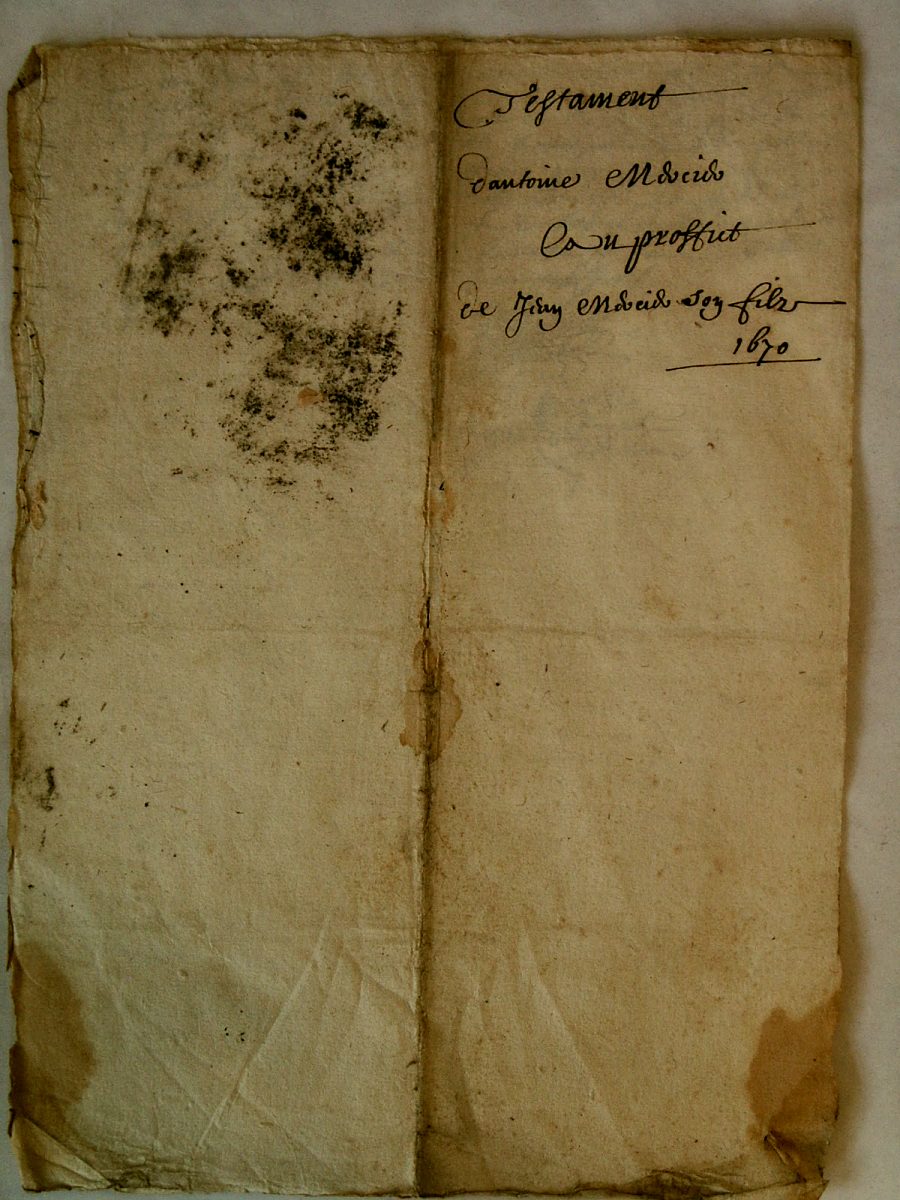 Testament
dantoine Medecide
au proffict
de Jean Medecide son filz
1670